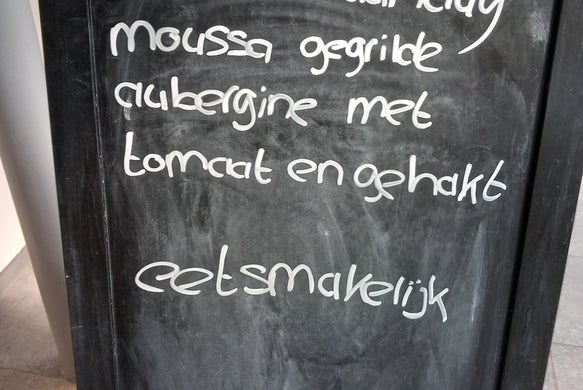 moussa gegrilde
aubergine met
tomaat en gehakt
eetsmakelijk